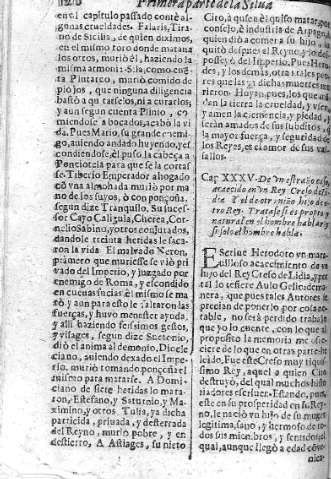 Primera parte de la Silua
en el capitulo passado conté al-
gunas crueldades. Falaris, Tira-
no de Sicilia, de quien diximos,
en el mismo toro donde mataua
los otros, murió el, haziendo la
misma armoni Sila, como cuen-
ta Plutarco, murió comido de
piojos, que ninguna diligencia
bastò a quitarselos, ni a curarlos,
y aun segun cuenta Plinio, co-
miendose a bocados, acabó la vi
da. Pues Mario, su grande enemi-
go, auiendo andado huyendo, y es
condiendose, puso la cabeça a
Poncio para que se la cortas
se. Tiberio Emperador ahogado
cõ vna almohada murio por ma
no de los suyos, ò con ponçoña,
segun dize Tranquilo. Su succes-
sor Cayo Caligula, Cherea, Cor-
nelio Sabino, y otros conjurados,
dandole treinta heridas le saca-
ron la vida. El maluado Neron,
primero que muriesse se viò pri
uado del Imperio, y juzgado por
enemigo de Roma, y escondido
en cueuas suzias: el mismo se ma
tò, y aun para esto le faltaron las
fuerças, y huuo menester ayuda,
y alli haziendo ferissimos gestos,
y visages, segun dize Suetonio,
dio el anima al demonio. Diocle
ciano, auiendo dexado el Impe-
rio, murió tomando ponçoña el
mismo para matarse. A Domi-
ciano de siete heridas lo mata-
ron, Estefano, y Saturnio, y Ma-
ximino, y otros. Tulia, ya dicha
parricida, priuada, y desterrada
del Reyno, murió pobre, y en
destierro. A Astiages, su nieto
Ciro, a quien èl quiso matar, por
consejo, è industria de Arpago, a
quien dio a comer a su hijo,
quitò despues el Reyno, y lo des
posseyò del Imperio. Pues Hero
des, y los demas, otros tales peo
res que las ya dichas muertes mu
rieron. Huyan pues, los que man
dan la tierra la crueldad, y vsen,
y amen la clemencia, y piedad, y
seràn amados de sus subditos, que
la mayor fuerça, y seguridad de
los Reyes, es el amor de sus vas-
sallos.
Cap. XXXV. De vn estraño caso,
acaecido en vn Rey Creso de Li-
dia. Y el de otro niño hijo de o-
tro Rey. Tratase si es propio, y
natural en el hombre hablar, y
si solo el hombre habla.
EScriue Herodoto vn mara-
uilloso acaecimiento de vn
hijo del Rey Creso de Lidia, y por
tal lo refiere Aulo Gelio: de ma-
nera, que pues tales Autores se
precian de ponerlo por cosa no-
table, no serà perdido trabajo
que yo lo cuente, con lo que al
proposito la memoria me ofre-
ciere de lo que en otras partes he
leido. Fue este Creso muy riquis
simo Rey, aquel a quien Ciro
destruyò, del qual muchos histo
riadores escriuen. Estando, pues,
este en su prosperidad en su Rey-
no, le nació vn hijo de su muger
legitima, sano, y hermoso de to-
dos sus miembros, y sentidos, el
qual, aunque llegò a edad cõue
nien-